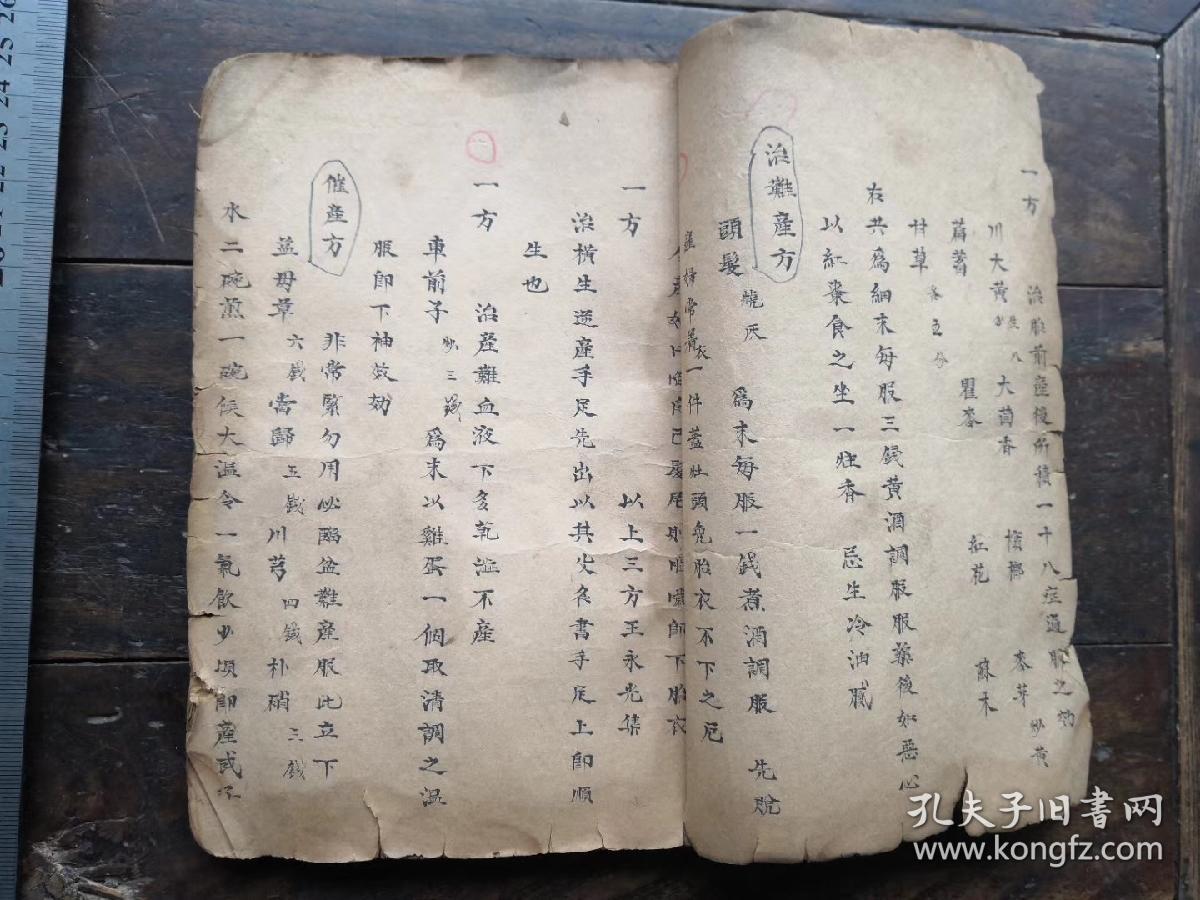 一方 治胎前產後所積一十八症適服之効
川大黃 八 大茴香 檳榔 麥芽 炒黃
萹蓄 瞿麥 紅花 蘇木
甘草 各五分
右共爲細末每服三錢黃酒調服服藥後如惡心
以紅棗食之坐一炷香 忌生冷油膩
治難產方
頭髮 燒灰 爲末每服一錢煮酒調服 先脫
產婦常着衣一件蓋灶頭免胎衣不下之厄
一方 以上三方王永光集
治橫生逆產手足先出以其父名書手足上即順
生也
一方 治產難血液下多乾澁不產
車前子 炒三錢 爲末以雞蛋一個取清調之溫
服即下神效効
催產方 非常緊勿用必臨盆難產服此立下
益母草 六錢 當歸 五錢 川芎 四錢 朴硝 三錢
水二碗煎一碗候大溫令一氣飲少頃即產或不
20 21 22 23 24 25 26
孔夫子旧书网
www.kongfz.com